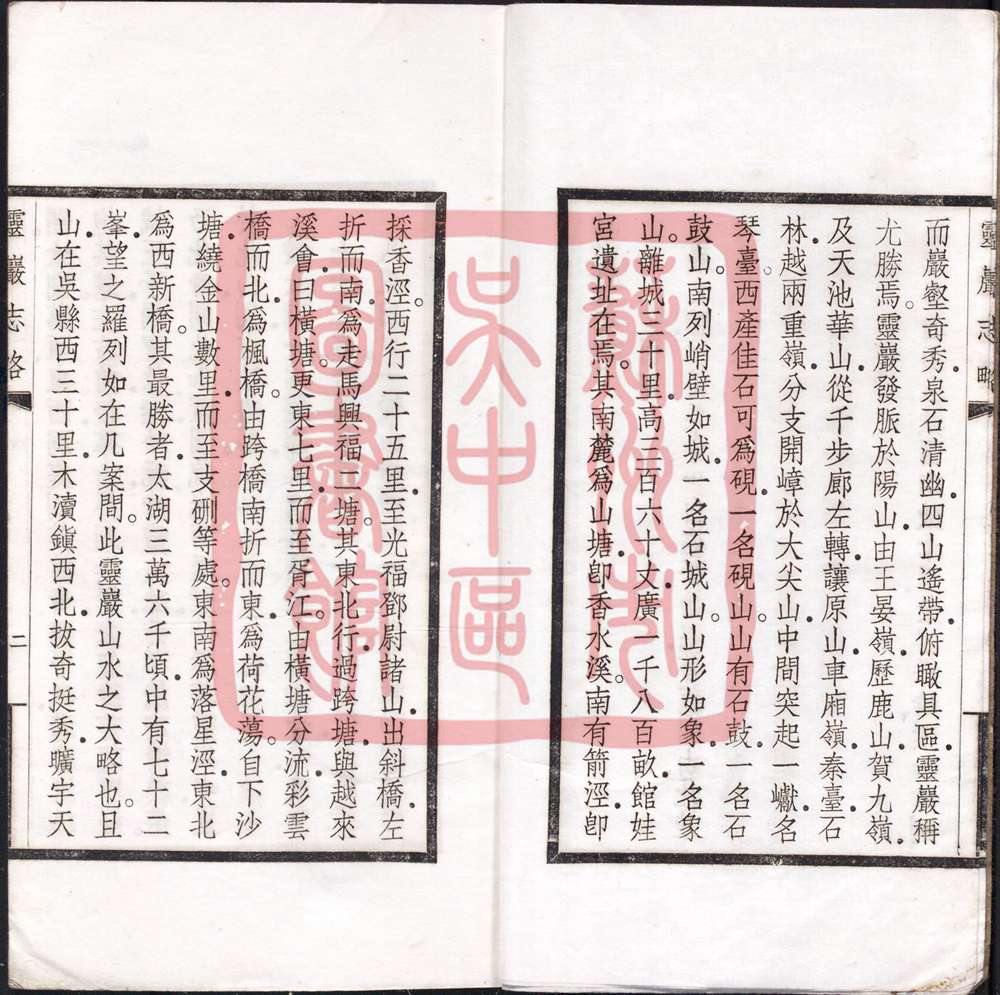 靈巖志略
而巖壑奇秀泉石清幽四山遙帶俯瞰具區靈巖稱
尤勝焉。靈巖發脈於陽山由王晏嶺歷鹿山賀九嶺
及天池華山從千步廊左轉讓原山車廂嶺秦臺石
林越兩重嶺分支開嶂於大尖山中間突起一巘名
琴臺。西產佳石可爲硯一名硯山。山有石鼓一名石
鼓山。南列峭壁如城一名石城山。山形如象一名象
山。離城三十里高三百六十丈廣一千八百畝館娃
宮遺址在焉。其南麓爲山塘卽香水溪。南有箭涇卽
採香涇。西行二十五里至光福鄧尉諸山出斜橋左
折而南爲走馬興福二塘。其東北行過跨塘與越來
溪會曰橫塘更東七里而至胥江。由橫塘分流彩雲
橋而北爲楓橋。由跨橋南折而東爲荷花蕩。自下沙
塘繞金山數里而至支硎等處。東南爲落星涇東北
爲西新橋。其最勝者太湖三萬六千頃中有七十二
峯望之羅列如在几案間。此靈巖山水之大略也。且
山在吳縣西三十里木瀆鎭西北拔奇挺秀曠宇天
靈巖志略
二
蘇州市
吳中區
圖書館